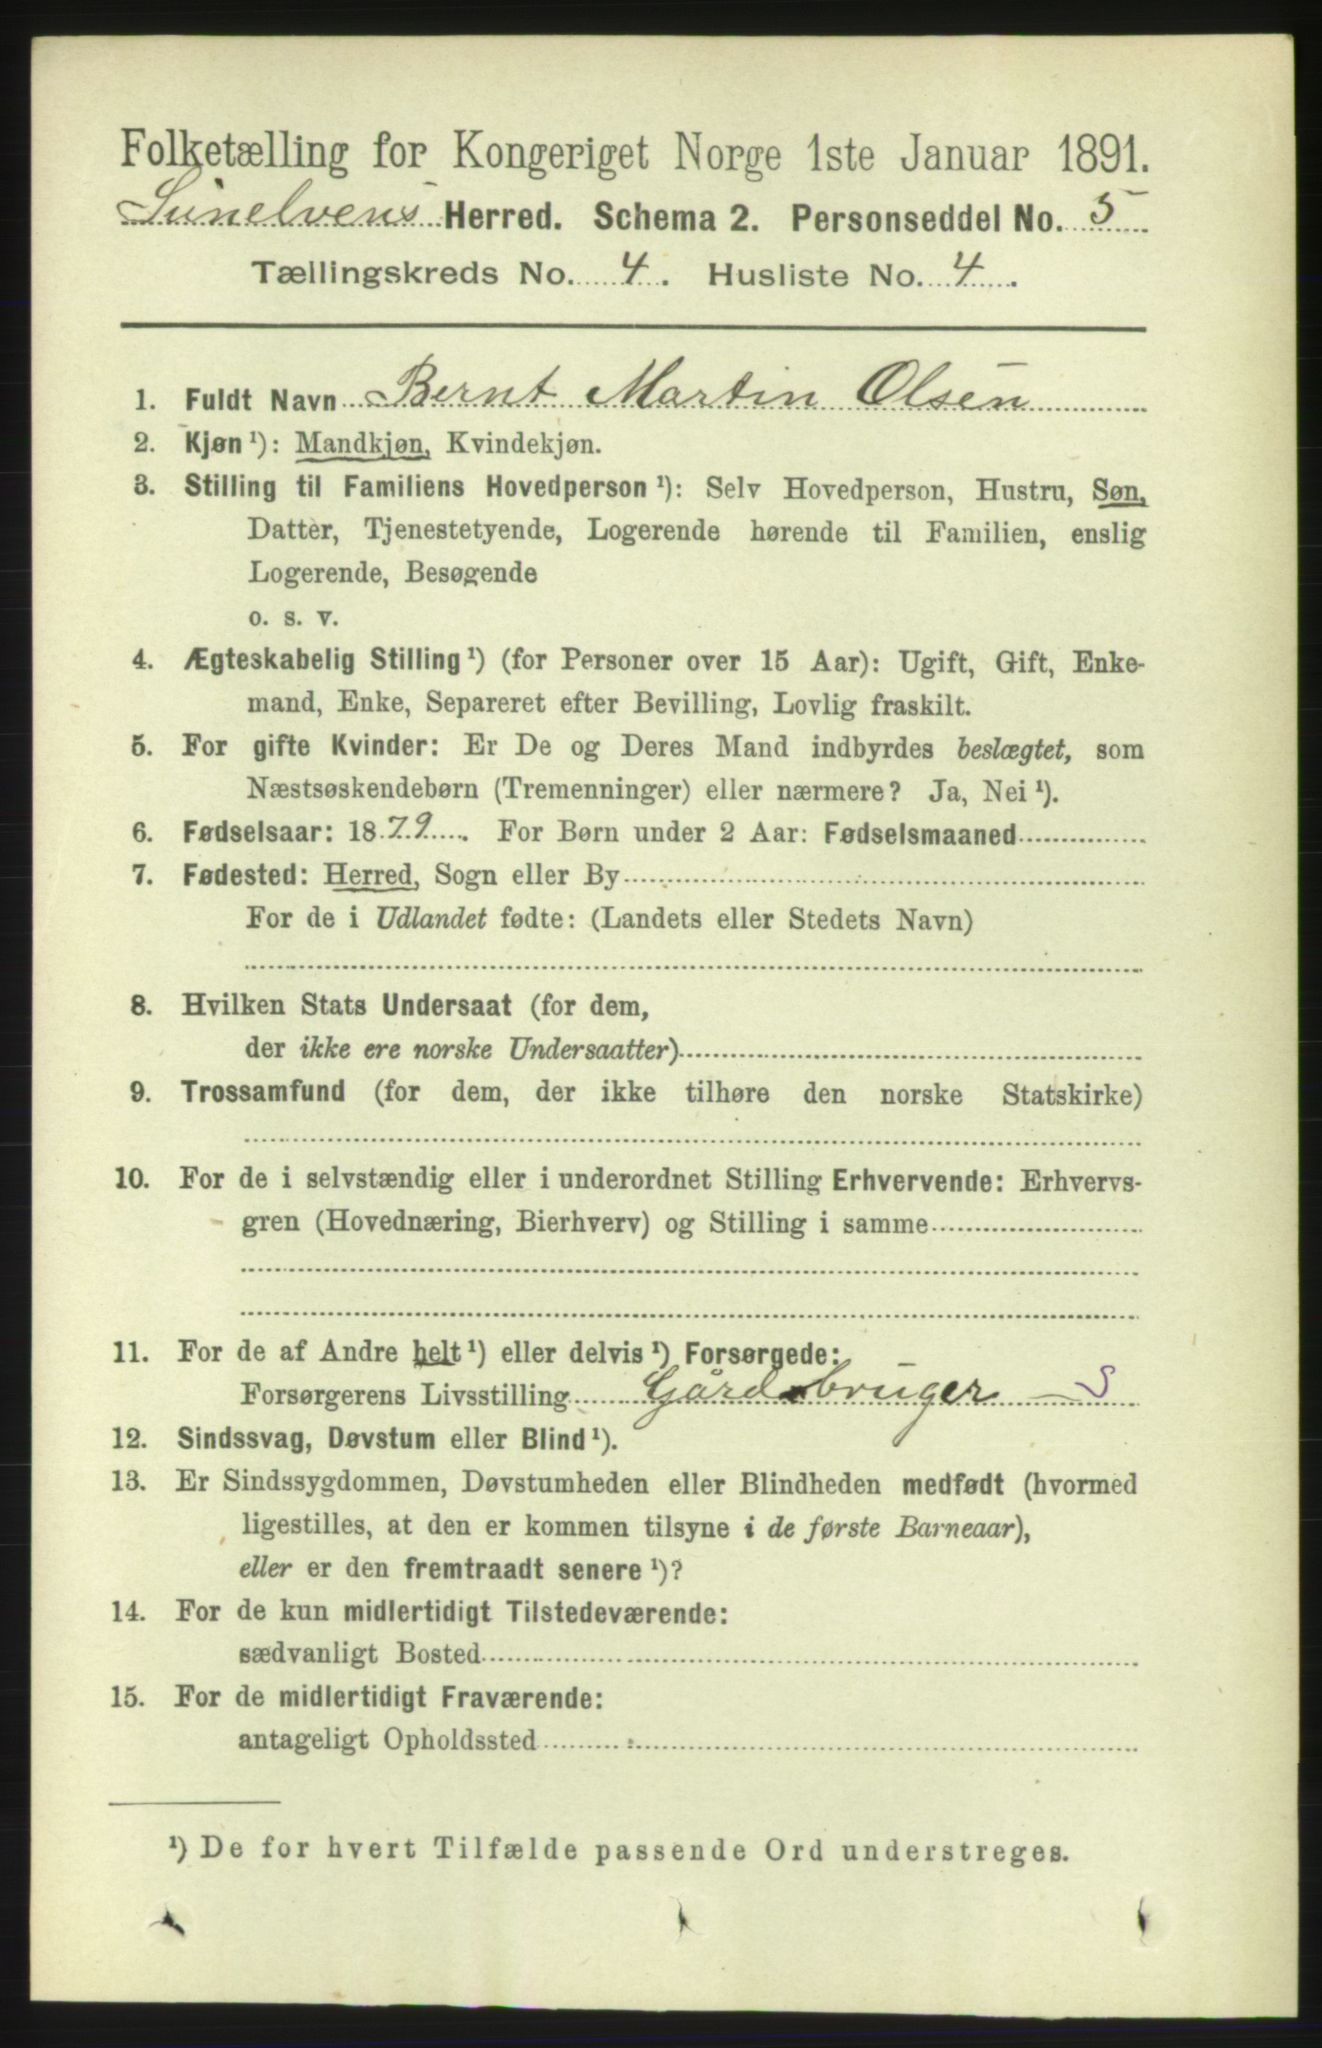 Folketælling for Kongeriget Norge 1ste Januar 1891.
Sunelvens Herred. Schema 2. Personseddel No. 5
Tællingskreds No. 4. Husliste No. 4.
1. Fuldt Navn Bernt Martin Olsen
2. Kjøn¹): Mandkjøn, Kvindekjøn.
3. Stilling til Familiens Hovedperson¹): Selv Hovedperson, Hustru, Søn,
Datter, Tjenestetyende, Logerende hørende til Familien, enslig
Logerende, Besøgende
o. s. v.
4. Ægteskabelig Stilling¹) (for Personer over 15 Aar): Ugift, Gift, Enke-
mand, Enke, Separeret efter Bevilling, Lovlig fraskilt.
5. For gifte Kvinder: Er De og Deres Mand indbyrdes beslægtet, som
Næstsøskendebørn (Tremenninger) eller nærmere? Ja, Nei¹).
6. Fødselsaar: 1879. For Børn under 2 Aar: Fødselsmaaned
7. Fødested: Herred, Sogn eller By
For de i Udlandet fødte: (Landets eller Stedets Navn)
8. Hvilken Stats Undersaat (for dem,
der ikke ere norske Undersaatter)
9. Trossamfund (for dem, der ikke tilhøre den norske Statskirke)
10. For de i selvstændig eller i underordnet Stilling Erhvervende: Erhvervs-
gren (Hovednæring, Bierhverv) og Stilling i samme
11. For de af Andre helt¹) eller delvis¹) Forsørgede:
Forsørgerens Livsstilling Gårdbruger — S
12. Sindssvag, Døvstum eller Blind¹).
13. Er Sindssygdommen, Døvstumheden eller Blindheden medfødt (hvormed
ligestilles, at den er kommen tilsyne i de første Barneaar),
eller er den fremtraadt senere¹)?
14. For de kun midlertidigt Tilstedeværende:
sædvanligt Bosted
15. For de midlertidigt Fraværende:
antageligt Opholdssted
¹) De for hvert Tilfælde passende Ord understreges.